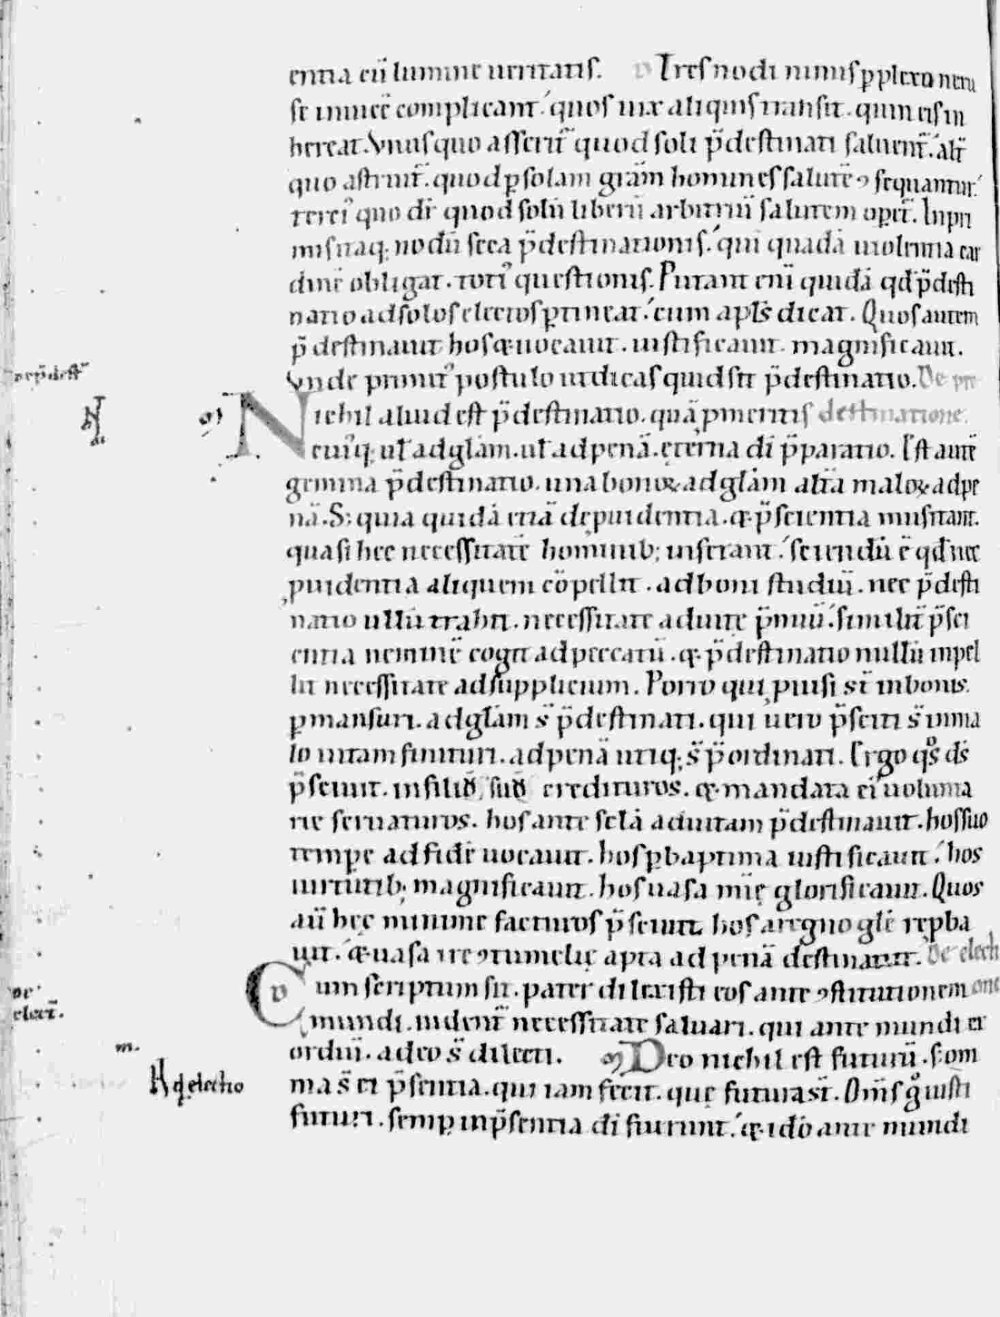 entia cū lumine ueritatis. D Tres nodi nimis pplexo nexu
se inuicē complicant.' quos uix aliquis transit. quin eis in
hereat. Vnus quo asserit᷑ quod soli p̄destinati saluent᷑.' alt̄
quo astruit᷑. quod ꝑ solam grām homines salutē ꝯsequantur.'
terci᷒ quo dr̄ quod solū liberū arbitriū salutem operet᷑. Inpri
mis itaq; nodū sc̄ta p̄destinationis.' qui quadā molitina car
dinē obligat. toti᷒ questionis. Putant eni quidā qd p̄desti
natio ad solos electos ꝑtineat.' cum apls dicat. Quos autem
p̄destinauit hos & uocauit. iustificauit. magnificauit.
Vnde primit᷒ postulo ut dicas quid sit p̄destinatio. De pre
Nichil aliud est p̄destinatio. quā p meritis destinatione.
cuiq; ul ad glām. ul ad penā. eterna dī p̄paratio. Est autē
gemina p̄destinatio. una bonoꝝ ad glām altā maloꝝ ad pe
nā. S; quia quidā etiā de puidentia. & p̄scientia musitant.
quasi hec necessitatē hominib; inferant.' sciendū ē qd nec
puidentia aliquem cōpellit. ad boni studiū. nec p̄desti
natio ullū trahit. necessitate ad uite p̄miū.' similit᷑ p̄sci
entia neminē cogit ad peccatū. & p̄destinatio nullū inpel
lit necessitate ad supplicium. Porro qui puisi st̄ in bonis
ꝑmansuri. ad glām s̄ p̄destinati. qui uero p̄sciti s̄ in ma
lo uitam finituri. ad penā utiq; s̄ p̄ordinati. Ergo qs̊ ds̄
p̄sciuit. in filiū suū credituros. & mandata ei uolunta
rie seruaturos. hos ante sclā ad uitam p̄destinauit. hos suo
tempe ad fidē uocauit. hos p baptisma iustificauit.' hos
uirtutib; magnificauit. hos uasa mie glorificauit. Quos
aū hec minime facturos p̄sciuit hos a regno glē repba
uit.' & uasa ire ꝯtumelie apta ad penā destinauit. De elech
Cum scriptum sit. pater dilexisti eos ante ꝯstitutionem one
mundi. uident᷑ necessitate saluari. qui ante mundi ex
ordiū. a deo s̄ dilecti. M Deo nichil est futurū. s; om
nia s̄ ei p̄sentia. qui iam fecit. que futura st̄. Oms̄ g iusti
futuri. semp in p̄sentia dī fiunt.' & idō ante mundi
de
elect.
m.
N q̄ electio